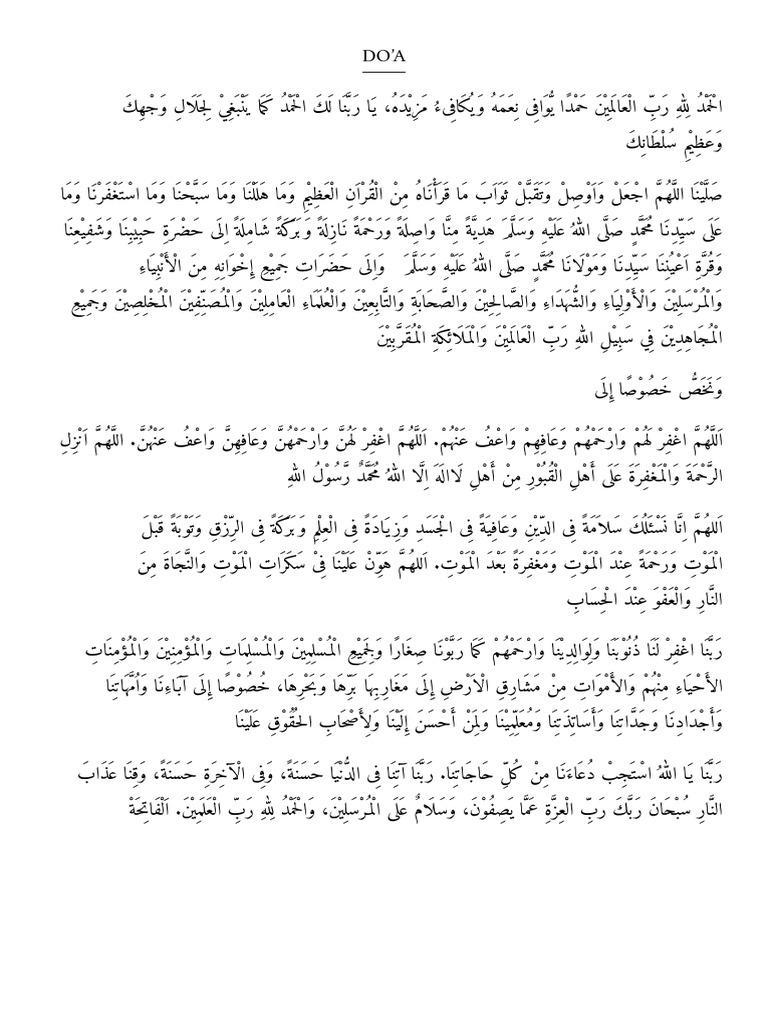 DO'A
الْحَمْدُ لِلهِ رَبِّ الْعَالَمِيْنَ حَمْدًا يُّوَافِى نِعَمَهُ وَيُكَافِىءُ مَزِيْدَهُ، يَا رَبَّنَا لَكَ الْحَمْدُ كَمَا يَنْبَغِيْ لِجَلَالِ وَجْهِكَ
وَعَظِيْمِ سُلْطَانِكَ
صَلَّيْنَا اللَّهُمَّ اجْعَلْ وَاَوْصِلْ وَتَقَبَّلْ ثَوَابَ مَا قَرَأْنَاهُ مِنْ الْقُرْاَنِ الْعَظِيْمِ وَمَا هَلَلْنَا وَمَا سَبَّحْنَا وَمَا اسْتَغْفَرْنَا وَمَا
عَلَى سَيِّدِنَا مُحَمَّدٍ صَلَّى اللهُ عَلَيْهِ وَسَلَّمَ هَدِيَّةً مِنَّا وَاصِلَةً وَرَحْمَةً نَازِلَةً وَبَرَكَةً شَامِلَةً اِلَى حَضْرَةِ حَبِيْبِنَا وَشَفِيْعِنَا
وَقُرَّةِ اَعْيُنِنَا سَيِّدِنَا وَمَوْلَانَا مُحَمَّدٍ صَلَّى اللهُ عَلَيْهِ وَسَلَّمَ وَاِلَى حَضَرَاتِ جَمِيْعِ إِخْوَانِهِ مِنَ الْأَنْبِيَاءِ
وَالْمُرْسَلِيْنَ وَالْأَوْلِيَاءِ وَالشُّهَدَاءِ وَالصَّالِحِيْنَ وَالصَّحَابَةِ وَالتَّابِعِيْنَ وَالْعُلَمَاءِ الْعَامِلِيْنَ وَالْمُصَنِّفِيْنَ الْمُخْلِصِيْنَ وَجَمِيْعِ
الْمُجَاهِدِيْنَ فِي سَبِيْلِ اللهِ رَبِّ الْعَالَمِيْنَ وَالْمَلَائِكَةِ الْمُقَرَّبِيْنَ
وَنَخَصُّ خَصُوْصًا إِلَى
اَللَّهُمَّ اغْفِرْ لَهُمْ وَارْحَمْهُمْ وَعَافِهِمْ وَاعْفُ عَنْهُمْ. اَللَّهُمَّ اغْفِرْ لَهُنَّ وَارْحَمْهُنَّ وَعَافِهِنَّ وَاعْفُ عَنْهُنَّ. اللَّهُمَّ اَنْزِلِ
الرَّحْمَةَ وَالْمَغْفِرَةَ عَلَى أَهْلِ الْقُبُوْرِ مِنْ أَهْلِ لَااِلَهَ اِلَّا اللهُ مُحَمَّدٌ رَّسُوْلُ اللهِ
اَللهُمَّ اِنَّا نَسْئَلُكَ سَلَامَةً فِى الدِّيْنِ وَعَافِيَةً فِى الْجَسَدِ وَزِيَادَةً فِى الْعِلْمِ وَبَرَكَةً فِى الرِّزْقِ وَتَوْبَةً قَبْلَ
الْمَوْتِ وَرَحْمَةً عِنْدَ الْمَوْتِ وَمَغْفِرَةً بَعْدَ الْمَوْتِ. اَللهُمَّ هَوِّنْ عَلَيْنَا فِىْ سَكَرَاتِ الْمَوْتِ وَالنَّجَاةَ مِنَ
النَّارِ وَالْعَفْوَ عِنْدَ الْحِسَابِ
رَبَّنَا اغْفِرْ لَنَا ذُنُوْبَنَا وَلِوَالِدِيْنَا وَارْحَمْهُمْ كَمَا رَبَّوْنَا صِغَارًا وَلِجَمِيْعِ الْمُسْلِمِيْنَ وَالْمُسْلِمَاتِ وَالْمُؤْمِنِيْنَ وَالْمُؤْمِنَاتِ
الأَحْيَاءِ مِنْهُمْ وَالأَمْوَاتِ مِنْ مَشَارِقِ الْاَرْضِ إِلَى مَغَارِبِهَا بَرِّهَا وَبَحْرِهَا، خُصُوْصًا إِلَى آبَاءِنَا وَاُمَّهَاتِنَا
وَأَجْدَادِنَا وَجَدَّاتِنَا وَأَسَاتِذَتِنَا وَمُعَلِّمِيْنَا وَلِمَنْ أَحْسَنَ إِلَيْنَا وَلِأَصْحَابِ الْحُقُوْقِ عَلَيْنَا
رَبَّنَا يَا اللهُ اسْتَجِبْ دُعَاءَنَا مِنْ كُلِّ حَاجَاتِنَا. رَبَّنَا آتِنَا فِى الدُّنْيَا حَسَنَةً، وَفِى الْآخِرَةِ حَسَنَةً، وَقِنَا عَذَابَ
النَّارِ سُبْحَانَ رَبِّكَ رَبِّ الْعِزَّةِ عَمَّا يَصِفُوْنَ، وَسَلَامٌ عَلَى الْمُرْسَلِيْنَ، وَالْحَمْدُ لِلهِ رَبِّ الْعَلَمِيْنَ. اَلْفَاتِحَةْ